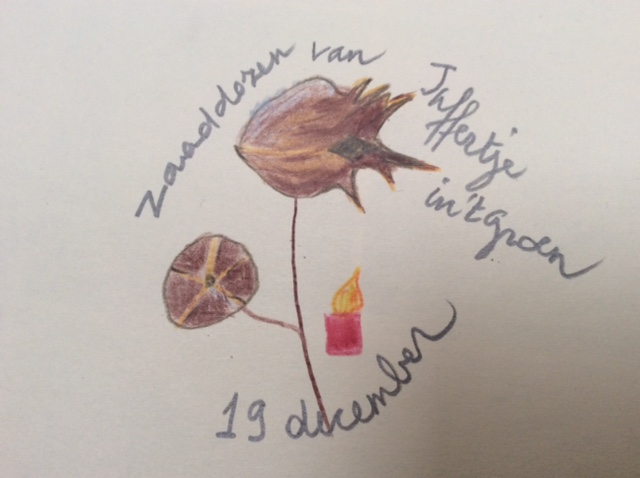 zaaddozen van
Juffertje
in't groen
19 december